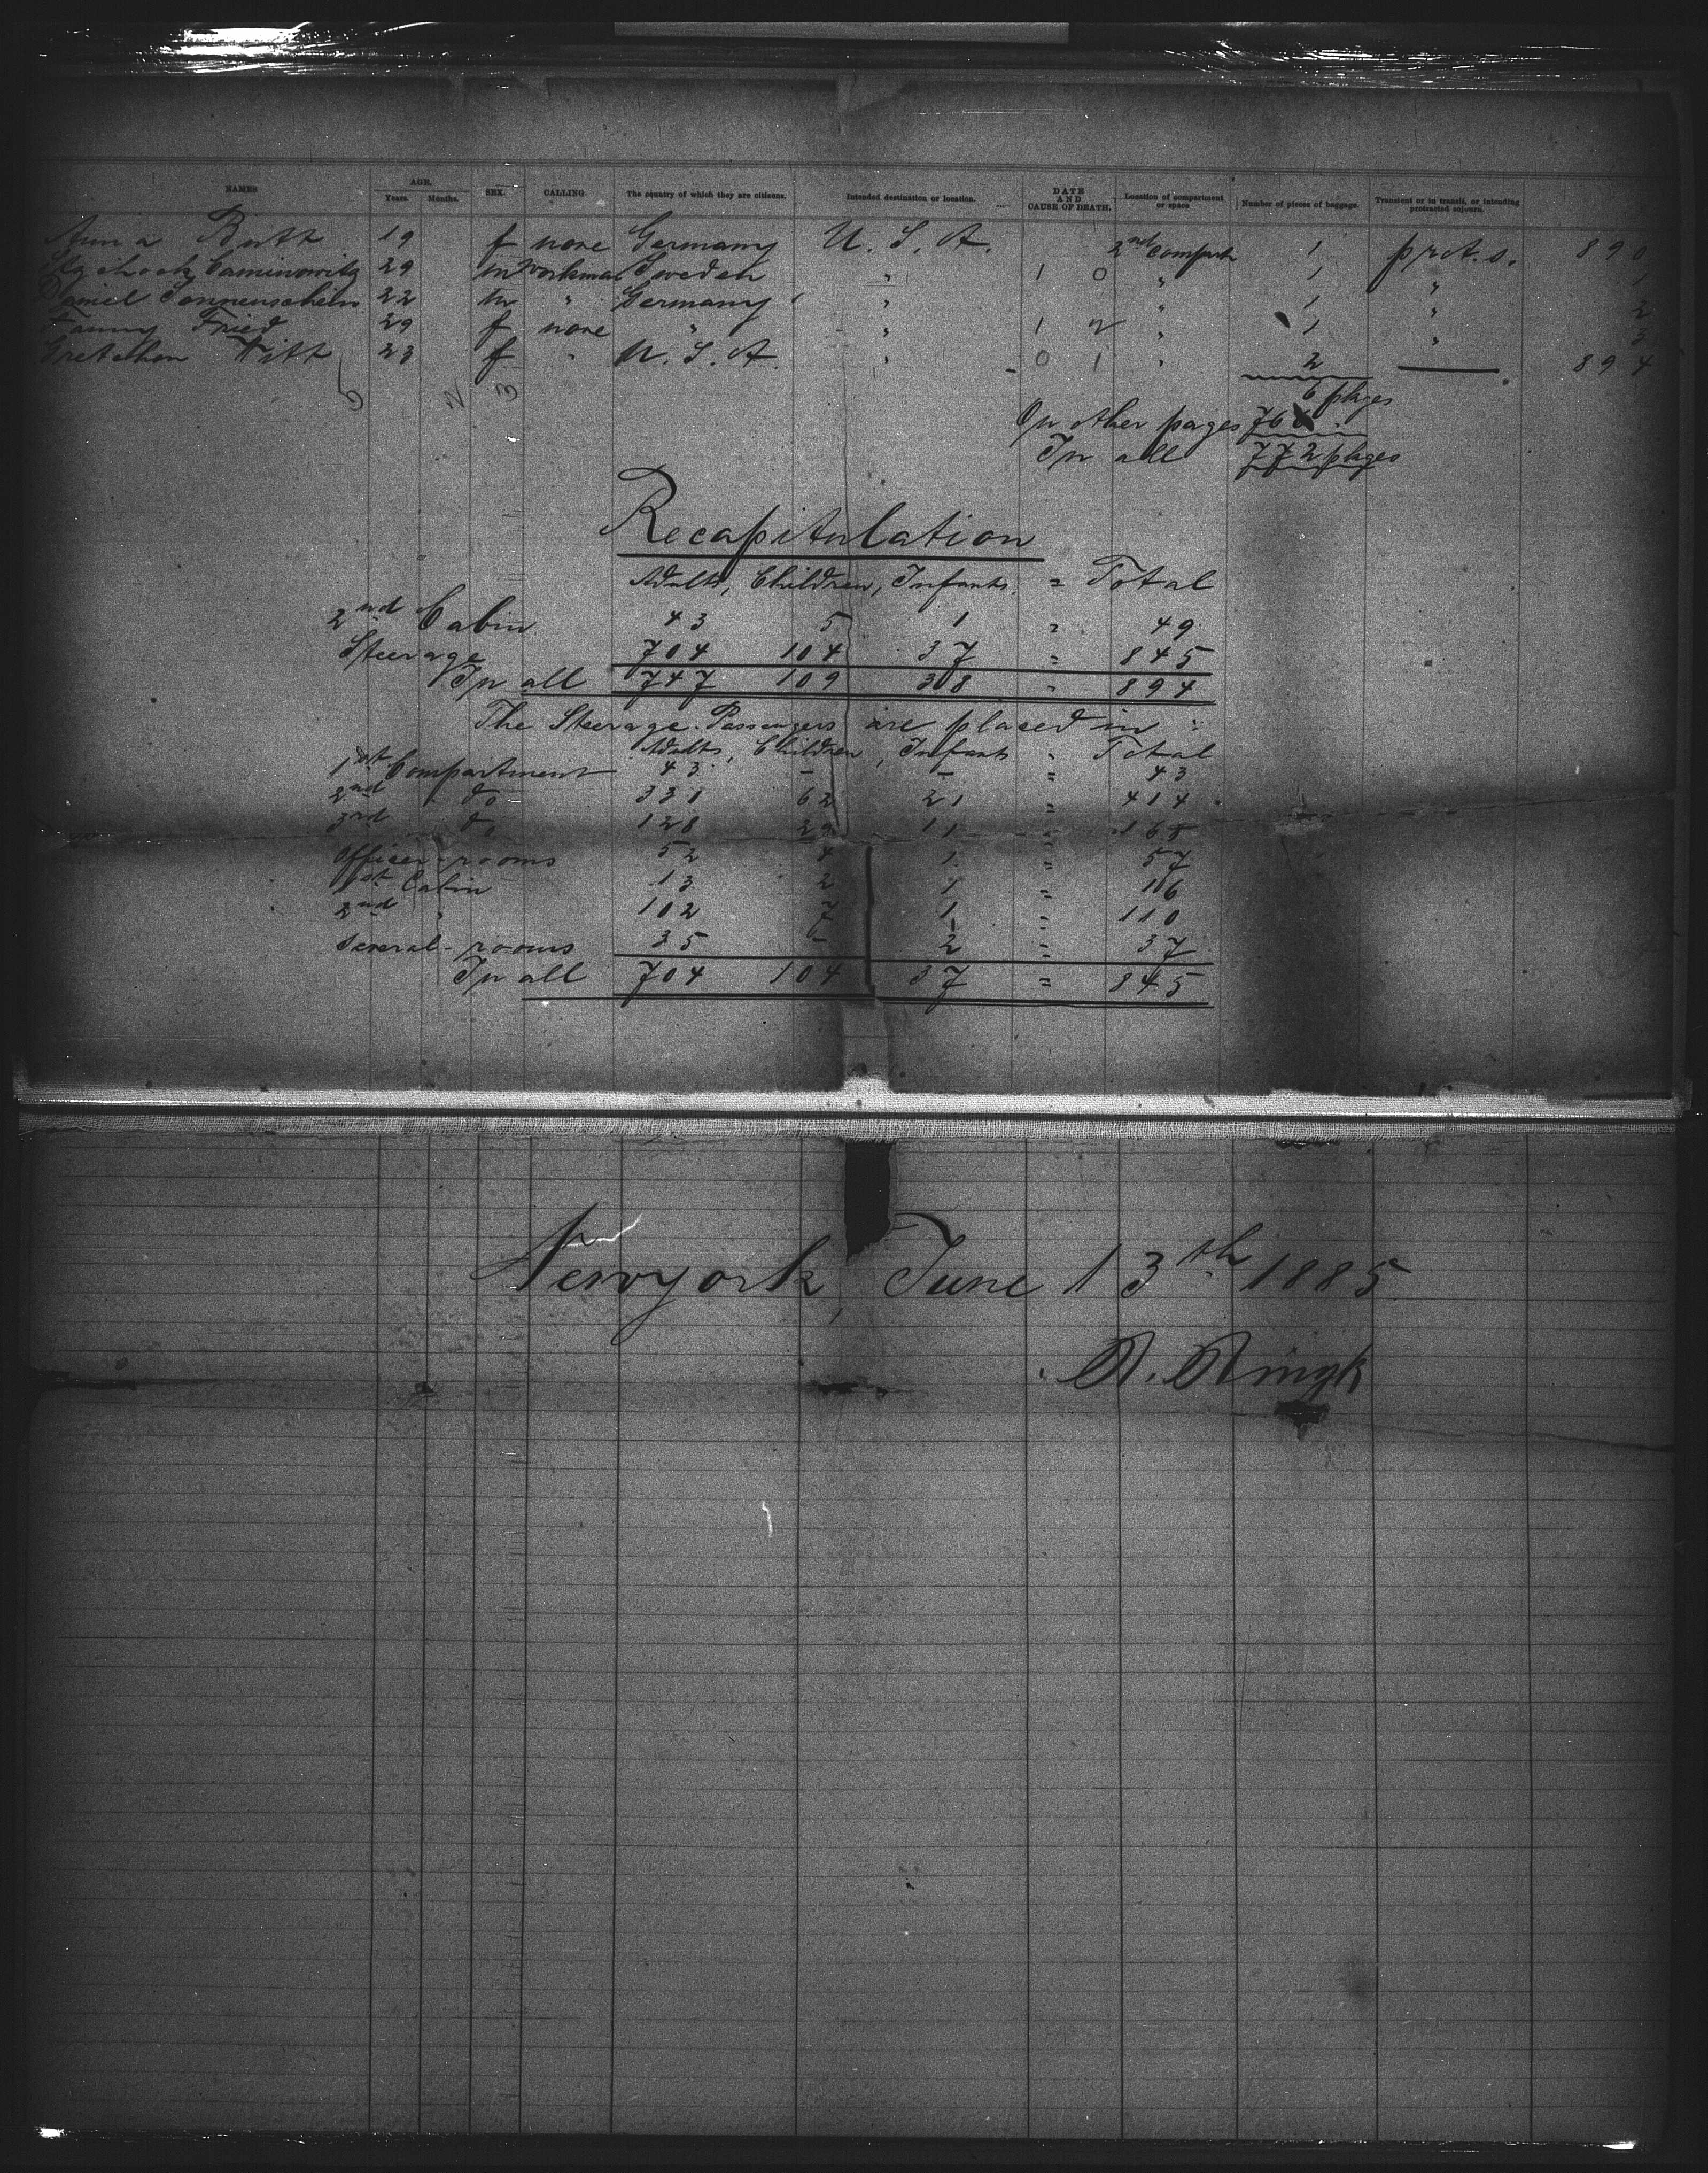 NAMES AGE. Years. Months. SEX. CALLING. The country of which they are citizens. Intended destination or location. DATE AND CAUSE OF DEATH. Location of compartment or space Number of pieces of baggage. Transient or in transit, or intending protracted sojourn.
Anna Butt 19 f none Germany U. S. A. 2nd Compart 1 prot. s. 890
Caminowitz 29 m Workman Sweden " 1 0 " 1 " 1
Daniel Sonnenschein 22 m " Germany " " 1 " 2
Fanny Fried 29 f none " " 1 2 " 1 " 3
Gretchen Witt 23 f " U. S. A. " 0 1 " 2 894
6 2 3
6 pkges
On other pages 766
In all 772 pkges
Recapitulation
Adults, Children, Infants. = Total
2nd Cabin 43 5 1 " 49
Steerage 704 104 37 = 845
In all 747 109 38 " 894
The Steerage-Passengers are placed in :
Adults, Children, Infants " Total
1st Compartment 43 - - = 43
2nd " do 331 62 21 = 414
3rd do 128 29 11 = 168
Officer-rooms 52 4 1 = 57
1st Cabin 13 2 1 = 16
2nd " 102 7 1 = 110
Several-rooms 35 - 2 = 37
In all 704 104 37 = 845
Newyork, June 13th 1885
R. Ringk